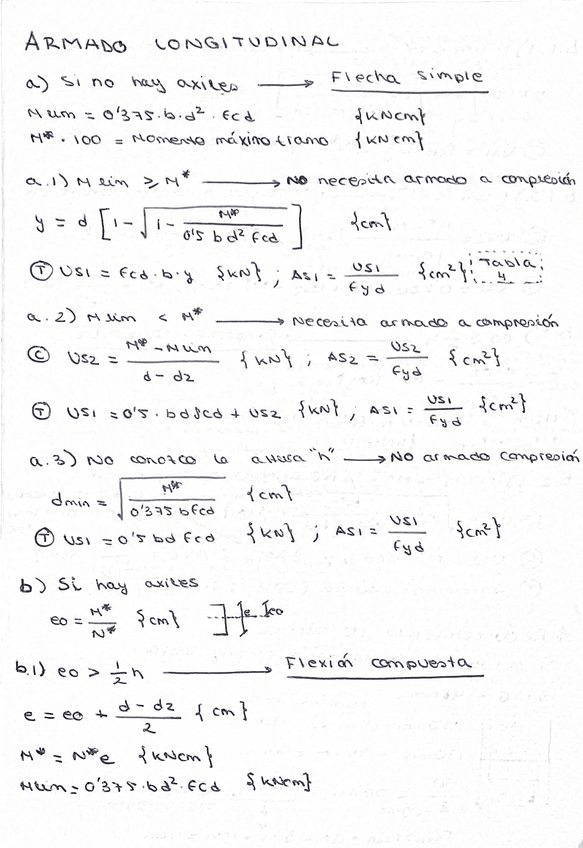 ARMADO LONGITUDINAL
a) Si no hay axiles → Flecha simple
Mlim = 0'375·b·d²·fcd {kNcm}
M*·100 = Momento máximo tramo {kNcm}
a.1) Mlim ≥ M* → NO necesita armado a compresión
y = d [1 - √(1 - M*/(0'5 bd² fcd))] {cm}
(T) US1 = fcd·b·y {kN} ; AS1 = US1/fyd {cm²} Tabla 4
a.2) Mlim < M* → Necesita armado a compresión
(C) US2 = (M* - Mlim)/(d - d2) {kN} ; AS2 = US2/fyd {cm²}
(T) US1 = 0'5·bdfcd + US2 {kN} ; AS1 = US1/fyd {cm²}
a.3) No conozco la altura "h" → No armado compresión
dmin = √(M*/(0'375 bfcd)) {cm}
(T) US1 = 0'5 bd fcd {kN} ; AS1 = US1/fyd {cm²}
b) Si hay axiles
eo = M*/N* {cm} e eo
b.1) eo > 1/2 h → Flexión compuesta
e = eo + (d - d2)/2 {cm}
M* = N*e {kNcm}
Mlim = 0'375·bd²·fcd {kNcm}